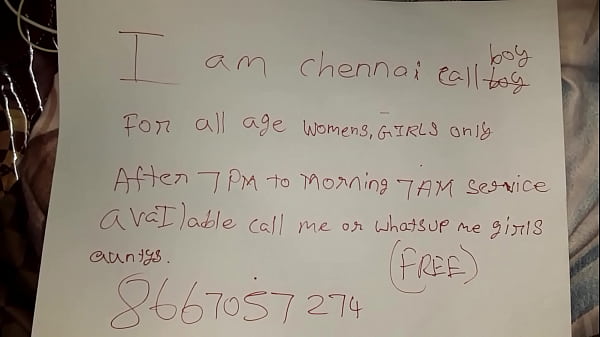 I am chennai call boy
For all age womens, GIRLS only
After 7 PM to morning 7 AM service
avaIlable call me or whatsup me girls
auntys. (FREE)
8667057274